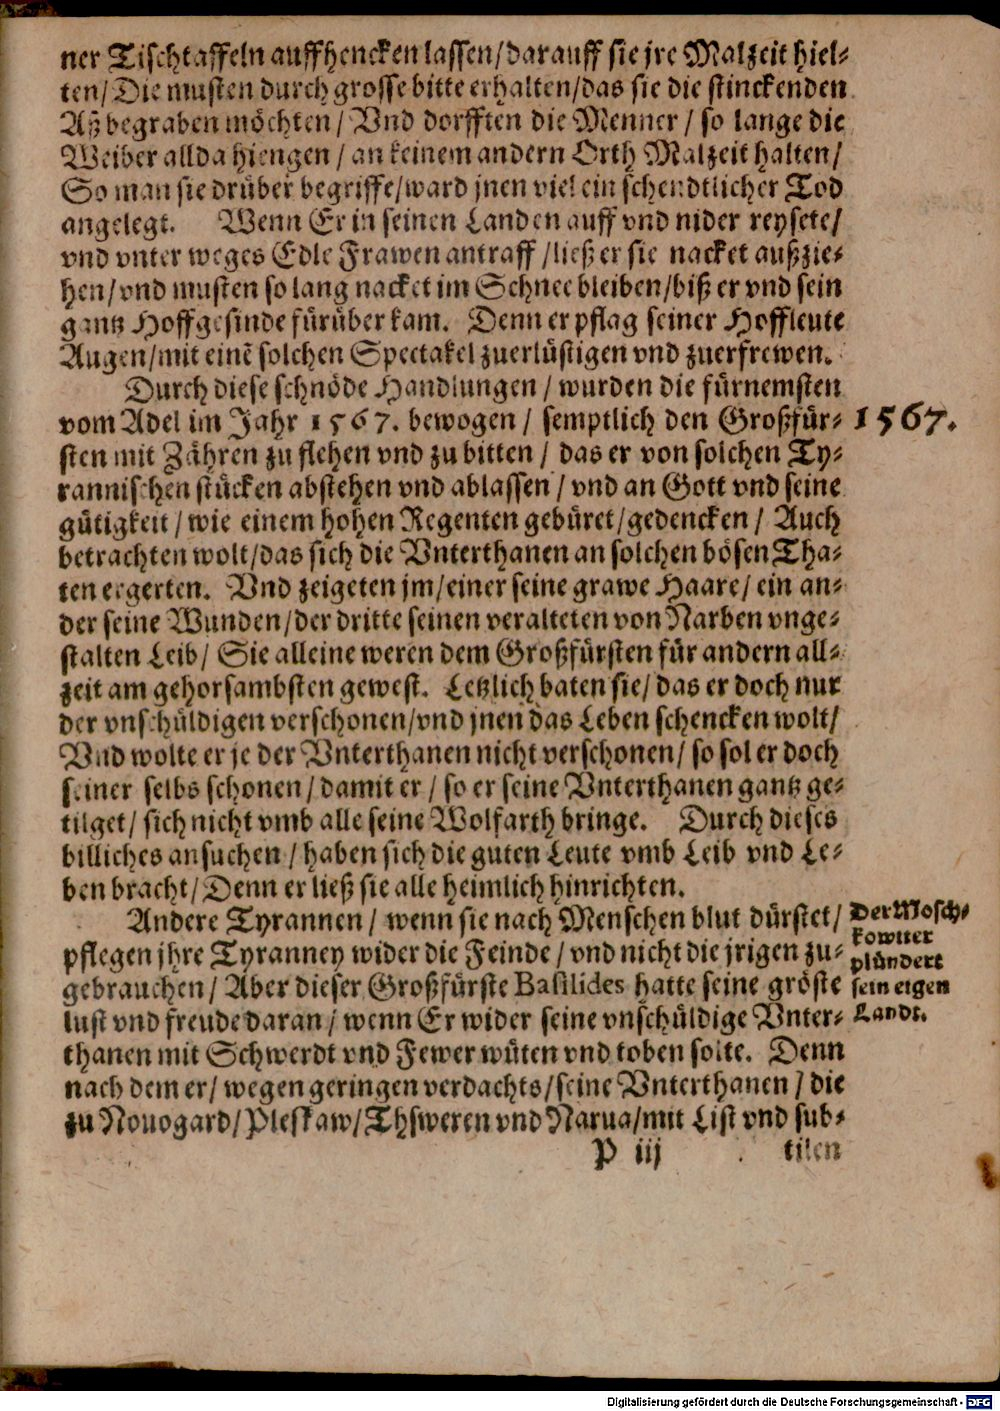 ner Tischtaffeln auffhencken lassen/darauff sie jre Malzeit hiel-
ten/Die musten durch grosse bitte erhalten/das sie die stinckenden
Aß begraben möchten/ Vnd dorfften die Menner/ so lange die
Weiber allda hiengen/ an keinem andern Orth Malzeit halten/
So man sie drüber begriffe/ward jnen viel ein schendtlicher Tod
angelegt. Wenn Er in seinen Landen auff vnd nider reysete/
vnd vnter weges Edle Frawen antraff/ließ er sie nacket außzie-
hen/vnd musten so lang nacket im Schnee bleiben/biß er vnd sein
gantz Hoffgesinde fürüber kam. Denn er pflag seiner Hoffleute
Augen/mit einē solchen Spectakel zuerlüstigen vnd zuerfrewen.
Durch diese schnöde Handlungen/ wurden die fürnemsten
vom Adel im Jahr 1567. bewogen/ semptlich den Großfür-
1567.
sten mit Zähren zu flehen vnd zu bitten/ das er von solchen Ty-
rannischen stücken abstehen vnd ablassen/ vnd an Gott vnd seine
gütigkeit/ wie einem hohen Regenten gebüret/gedencken/ Auch
betrachten wolt/das sich die Vnterthanen an solchen bösen Tha-
ten ergerten. Vnd zeigeten jm/einer seine grawe Haare/ ein an-
der seine Wunden/der dritte seinen veralteten von Narben vnge-
stalten Leib/ Sie alleine weren dem Großfürsten für andern all-
zeit am gehorsambsten gewest. Letzlich baten sie/ das er doch nur
der vnschüldigen verschonen/vnd jnen das Leben schencken wolt/
Vnd wolte er je der Vnterthanen nicht verschonen/ so sol er doch
seiner selbs schonen/ damit er/ so er seine Vnterthanen gantz ge-
tilget/ sich nicht vmb alle seine Wolfarth bringe. Durch dieses
billiches ansuchen/ haben sich die guten Leute vmb Leib vnd Le-
ben bracht/ Denn er ließ sie alle heimlich hinrichten.
Andere Tyrannen/ wenn sie nach Menschen blut dürstet/
pflegen jhre Tyranney wider die Feinde/ vnd nicht die jrigen zu-
gebrauchen/ Aber dieser Großfürste Basilides hatte seine gröste
lust vnd freude daran/ wenn Er wider seine vnschüldige Vnter-
thanen mit Schwerdt vnd Fewer wüten vnd toben solte. Denn
nach dem er/ wegen geringen verdachts/seine Vnterthanen/ die
zu Nouogard/Pleskaw/Thsweren vnd Narua/mit List vnd sub-
Der Mosch-
kowiter
plündert
sein eigen
Landt.
P iij
tilen
Digitalisierung gefördert durch die Deutsche Forschungsgemeinschaft - DFG